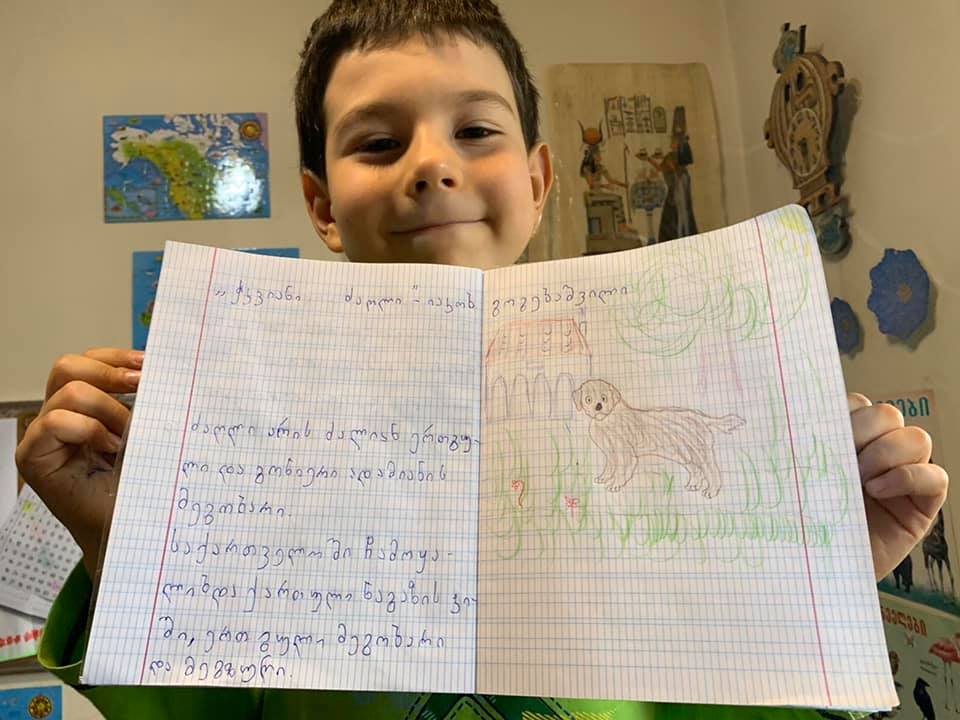 „ჭკვიანი ძაღლი" - იაკობ გოგებაშვილი
ძაღლი არის ძალიან ერთგუ-
ლი და გონიერი ადამიანის
მეგობარი.
საქართველოში ჩამოყა-
ლიბდა ქართული ნაგაზის ჯი-
ში, ერთ გული მეგობარი
და მეგზური.
ველები